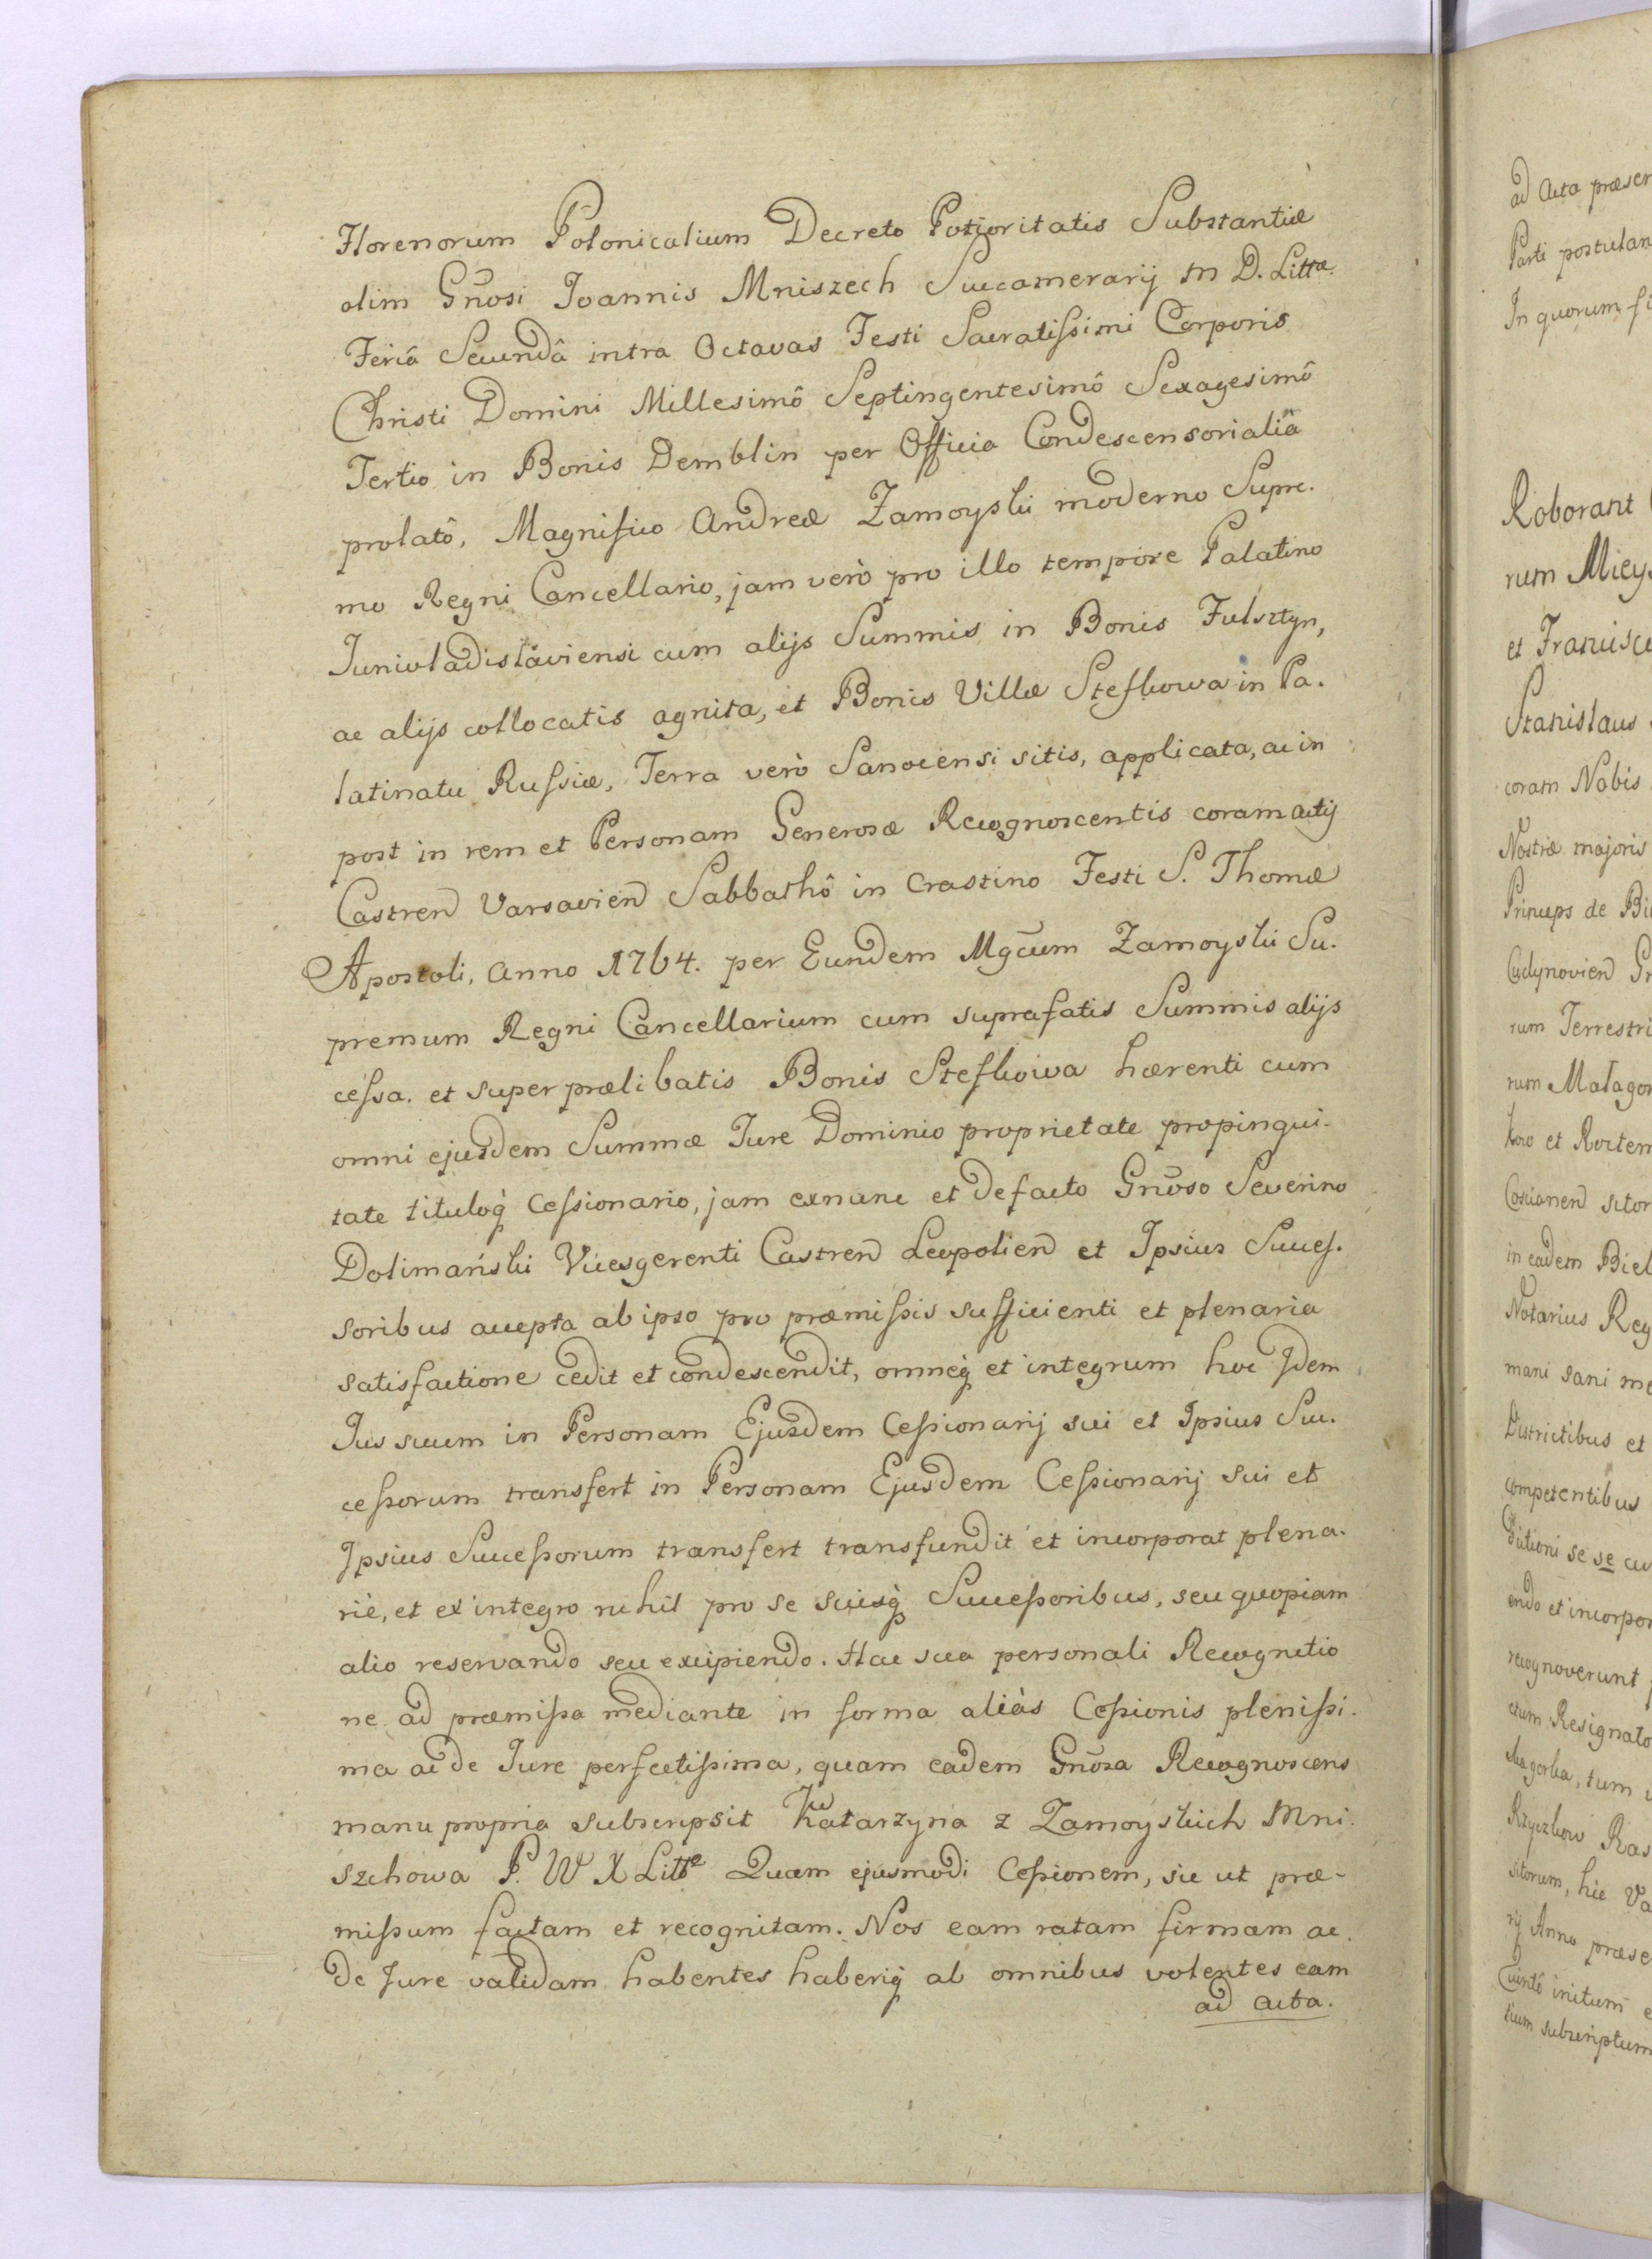 Florenorum Polonicalium Decreto Potioritatis Substantiæ
olim Gn̄osi Joannis Mniszech Succamerarij M D. Littæ.
Feriâ Secundâ intra Octavas Festi Sacratissimi Corporis
Christi Domini Millesimô Septingentesimô Sexagesimô
Tertio in Bonis Demblin per Officia Condescensorialia
prolatô, Magnifico Andreæ Zamoyski moderno Supre.
mo Regni Cancellario, jam verò pro illo tempore Palatino
Junivladislaviensi cum alijs Summis in Bonis Fulsztyn,
ac alijs collocatis agnita, et Bonis Villæ Stefkowa in Pa.
latinatu Russiæ, Terra verò Sanocensi sitis, applicata, ac in
post in rem et Personam Generosæ Recognoscentis coram actij
Castren Varsavien Sabbathô in Crastino Festi S. Thomæ
Apostoli, Anno 1764. per Eundem Mgc̄um Zamoyski Su.
premum Regni Cancellarium cum suprafatis Summis alijs
cessa. et super prælibatis Bonis Stefkowa hærenti cum
omni ejusdem Summæ Jure Dominio proprietate propinqui-
tate tituloq̀ Cessionario, jam exnunc et defacto Gn̄oso Severino
Dolimański Vicesgerenti Castren Leopolien et Ipsius Succes.
soribus accepta ab ipso pro præmissis sufficienti et plenaria
satisfactione cedit et condescendit, omneq̀ et integrum hoc Idem
Jus suum in Personam Ejusdem Cessionarij sui et Ipsius Suc.
cessorum transfert in Personam Ejusdem Cessionarij sui et
Ipsius Successorum transfert transfundit et incorporat plena.
riè, et ex integro nihil pro se suisq̀ Successoribus, seu quopiam
alio reservando seu excipiendo. Hac sua personali Recognitio
ne ad præmissa mediante in forma aliàs Cessionis plenissi.
ma ac de Jure perfectissima, quam eadem Gn̄osa Recognoscens
manu propria subscripsit Katarzyna z Zamoyskich Mni.
szchowa P. W X Litt̄ Quam ejusmodi Cessionem, sic ut præ-
missum factam et recognitam. Nos eam ratam firmam ac
de Jure validam habentes haberiq̀ ab omnibus volentes eam
ad acta.
ad Acta
Parti
In quorum
Roborant
rum
et
Stanislaus
coram Nobis
Nostræ majoris
Princeps de
rum
rum
et
in eadem
Notarius
mani sani
Districtibus et
competentibus
se se
endo et
recognoverunt
tum
sitorum, hic
rij Anno
initum